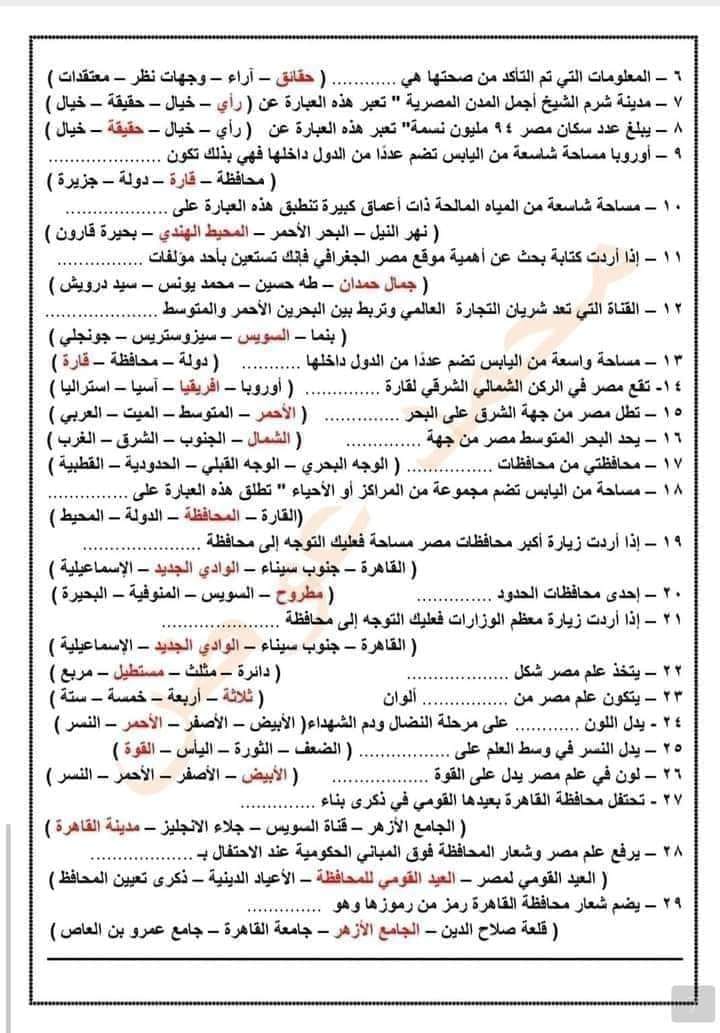 ٦ – المعلومات التي تم التأكد من صحتها هي ............ ( حقائق – آراء – وجهات نظر – معتقدات )
٧ – مدينة شرم الشيخ أجمل المدن المصرية " تعبر هذه العبارة عن ( رأي – خيال – حقيقة – خيال )
٨ – يبلغ عدد سكان مصر ٩٤ مليون نسمة" تعبر هذه العبارة عن ( رأي – خيال – حقيقة – خيال )
٩ – أوروبا مساحة شاسعة من اليابس تضم عددًا من الدول داخلها فهي بذلك تكون .....................
( محافظة – قارة – دولة – جزيرة )
١٠ – مساحة شاسعة من المياه المالحة ذات أعماق كبيرة تنطبق هذه العبارة على ...................
( نهر النيل – البحر الأحمر – المحيط الهندي – بحيرة قارون )
١١ – إذا أردت كتابة بحث عن أهمية موقع مصر الجغرافي فإنك تستعين بأحد مؤلفات ................
( جمال حمدان – طه حسين – محمد يونس – سيد درويش )
١٢ – القناة التي تعد شريان التجارة العالمي وتربط بين البحرين الأحمر والمتوسط .....................
( بنما – السويس – سيزوستريس – جونجلي )
١٣ – مساحة واسعة من اليابس تضم عددًا من الدول داخلها ........... ( دولة – محافظة – قارة )
١٤- تقع مصر في الركن الشمالي الشرقي لقارة .............. ( أوروبا – افريقيا – آسيا – استراليا )
١٥ – تطل مصر من جهة الشرق على البحر .............. ( الأحمر – المتوسط – الميت – العربي )
١٦ – يحد البحر المتوسط مصر من جهة .............. ( الشمال – الجنوب – الشرق – الغرب )
١٧ – محافظتي من محافظات ................ ( الوجه البحري – الوجه القبلي – الحدودية – القطبية )
١٨ – مساحة من اليابس تضم مجموعة من المراكز أو الأحياء " تطلق هذه العبارة على ...............
(القارة – المحافظة – الدولة – المحيط )
١٩ – إذا أردت زيارة أكبر محافظات مصر مساحة فعليك التوجه إلى محافظة ......................
( القاهرة – جنوب سيناء – الوادي الجديد – الإسماعيلية )
٢٠ – إحدى محافظات الحدود .............. ( مطروح – السويس – المنوفية – البحيرة )
٢١ – إذا أردت زيارة معظم الوزارات فعليك التوجه إلى محافظة ......................
( القاهرة – جنوب سيناء – الوادي الجديد – الإسماعيلية )
٢٢ – يتخذ علم مصر شكل ................... ( دائرة – مثلث – مستطيل – مربع )
٢٣ – يتكون علم مصر من ................ ألوان ( ثلاثة – أربعة – خمسة – ستة )
٢٤ - يدل اللون ............ على مرحلة النضال ودم الشهداء( الأبيض – الأصفر – الأحمر – النسر )
٢٥ – يدل النسر في وسط العلم على ................. ( الضعف – الثورة – اليأس – القوة )
٢٦ – لون في علم مصر يدل على القوة .................. ( الأبيض – الأصفر – الأحمر – النسر )
٢٧ - تحتفل محافظة القاهرة بعيدها القومي في ذكرى بناء ..............
( الجامع الأزهر – قناة السويس – جلاء الانجليز – مدينة القاهرة )
٢٨ – يرفع علم مصر وشعار المحافظة فوق المباني الحكومية عند الاحتفال بـ ...................
( العيد القومي لمصر – العيد القومي للمحافظة – الأعياد الدينية – ذكرى تعيين المحافظ )
٢٩ – يضم شعار محافظة القاهرة رمز من رموزها وهو ..............
( قلعة صلاح الدين – الجامع الأزهر – جامعة القاهرة – جامع عمرو بن العاص )